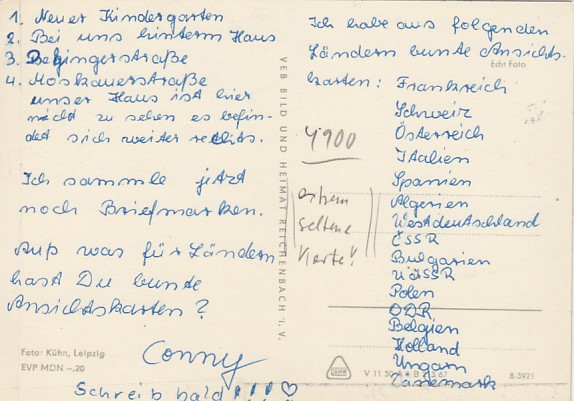 1. Neuer Kindergarten
2. Bei uns hinterm Haus
3.
4. Moskauerstraße
unser Haus ist hier
nicht zu sehen es befin-
det sich weiter rechts.
Ich sammle jetzt
noch Briefmarken.
Auß was für Ländern
hast Du bunte
Ansichtskarten?
Conny
Schreib bald!!!♡
Foto: Kühn, Leipzig
EVP MDN –,20
VEB BILD UND HEIMAT REICHENBACH I. V.
Ich habe aus folgenden
Ländern bunte Ansichts-
Echt Foto
karten: Frankreich
Schweiz
Österreich
Italien
Spanien
Algerien
Westdeutschland
ČSSR
Bulgarien
UdSSR
Polen
DDR
Belgien
Holland
Ungarn
Dänemark
4900
seltene
Karte!
V 11 50 A 4 B
8/3921